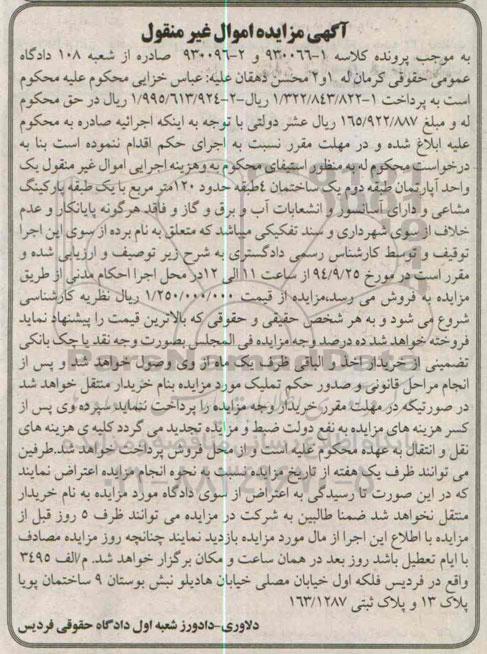 آگهی مزایده اموال غیر منقول
به موجب پرونده کلاسه ۱-۹۳۰۰۶۶ و ۲-۹۳۰۰۹۶ صادره از شعبه ۱۰۸ دادگاه
عمومی حقوقی کرمان له ۱و۲ محسن دهقان علیه: عباس خزایی محکوم علیه محکوم
است به پرداخت ۱-۱/۳۲۲/۸۴۳/۸۲۲ ریال-۲-۱/۹۹۵/۶۱۳/۹۲۴ ریال در حق محکوم
له و مبلغ ۱۶۵/۹۲۲/۸۸۷ ریال عشر دولتی با توجه به اینکه اجرائیه صادره به محکوم
علیه ابلاغ شده و در مهلت مقرر نسبت به اجرای حکم اقدام ننموده است بنا به
درخواست محکوم له به منظور استیفای محکوم به وهزینه اجرایی اموال غیر منقول یک
واحد آپارتمان طبقه دوم یک ساختمان ٤طبقه حدود ۱۲۰متر مربع با یک طبقه پارکینگ
مشاعی و دارای آسانسور و انشعابات آب و برق و گاز و فاقد هرگونه پایانکار و عدم
خلاف از سوی شهرداری و سند تفکیکی میباشد که متعلق به نام برده از سوی این اجرا
توقیف و توسط کارشناس رسمی دادگستری به شرح زیر توصیف و ارزیابی شده و
مقرر است در مورخ ۹٤/۹/۲۵ از ساعت ۱۱ الی ۱۲در محل اجرا احکام مدنی از طریق
مزایده به فروش می رسد.مزایده از قیمت ۱/۲۵۰/۰۰۰/۰۰۰ ریال نظریه کارشناسی
شروع می شود و به هر شخص حقیقی و حقوقی که بالاترین قیمت را پیشنهاد نماید
فروخته خواهد شد ده درصد وجه مزایده فی المجلس بصورت وجه نقد یا چک بانکی
تضمینی از خریدار اخذ و الباقی ظرف یک ماه از وی وصول خواهد شد و پس از
انجام مراحل قانونی و صدور حکم تملیک مورد مزایده بنام خریدار منتقل خواهد شد
در صورتیکه در مهلت مقرر خریدار وجه مزایده را پرداخت ننماید سپرده وی پس از
کسر هزینه های مزایده به نفع دولت ضبط و مزایده تجدید می گردد کلیه ی هزینه های
نقل و انتقال به عهده محکوم علیه است و از محل فروش پرداخت خواهد شد.طرفین
می توانند ظرف یک هفته از تاریخ مزایده نسبت به نحوه انجام مزایده اعتراض نمایند
که در این صورت تا رسیدگی به اعتراض از سوی دادگاه مورد مزایده به نام خریدار
منتقل نخواهد شد ضمنا طالبین به شرکت در مزایده می توانند ظرف ۵ روز قبل از
مزایده با اطلاع این اجرا از مال مورد مزایده بازدید نمایند چنانچه روز مزایده مصادف
با ایام تعطیل باشد روز بعد در همان ساعت و مکان برگزار خواهد شد. م/الف ۳٤۹۵
واقع در فردیس فلکه اول خیابان مصلی خیابان هادیلو نبش بوستان ۹ ساختمان پویا
پلاک ۱۳ و پلاک ثبتی ۱۶۳/۱۲۸۷
دلاوری-دادورز شعبه اول دادگاه حقوقی فردیس